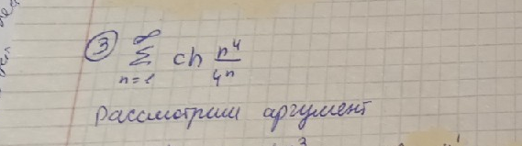 ③ ∑_{n=1}^{∞} ch n⁴/4ⁿ
Рассмотрим аргумент